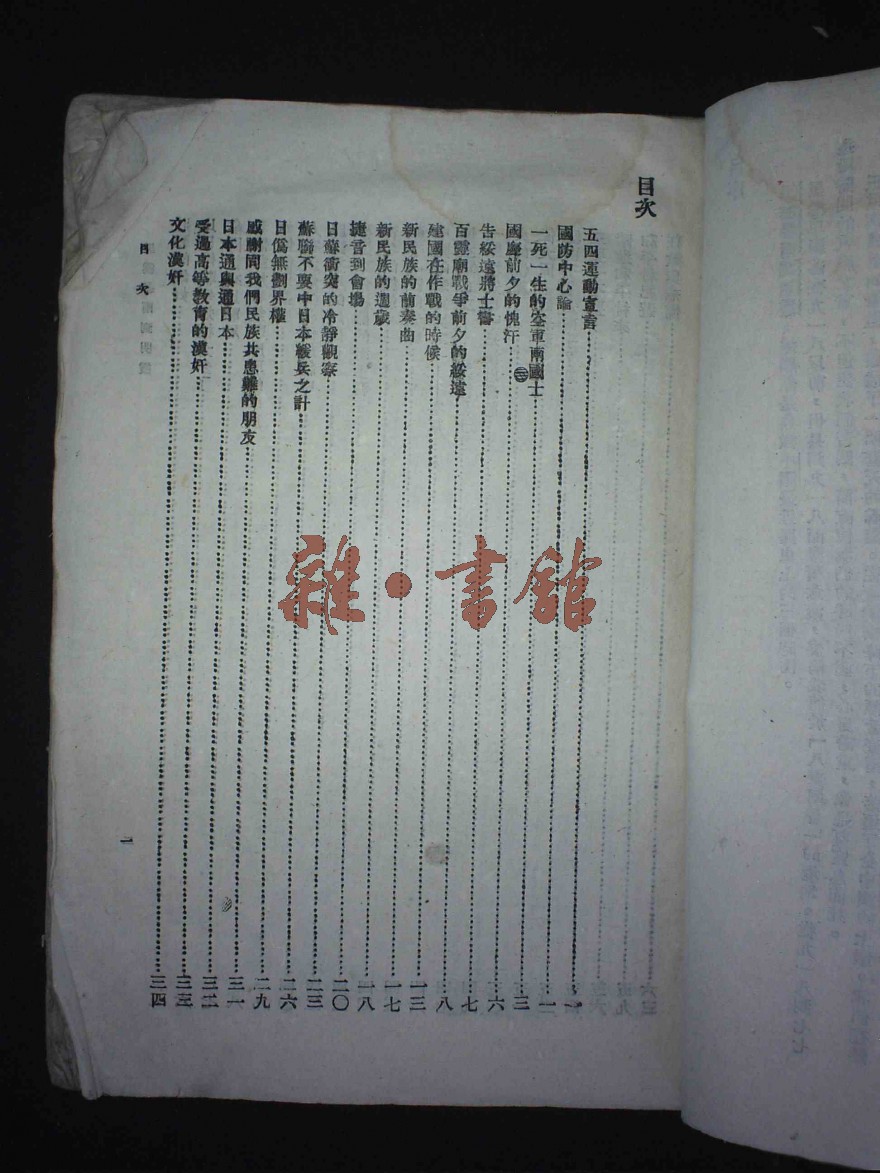 目次
五四運動宣言……一
國防中心論……二
一死一生的空軍兩國士……三
國慶前夕的愧汗……六
告綏遠將士書……七
百靈廟戰爭前夕的綏遠……八
建國在作戰的時候……一三
新民族的前奏曲……一七
新民族的週歲……一八
捷音到會場……二〇
日蘇衝突的冷靜觀察……二三
蘇聯不要中日本緩兵之計……二六
日偽無劃界權……二九
感謝同我們民族共患難的朋友……三一
日本通與通日本……三二
受過高等教育的漢奸……三三
文化漢奸……三四
目次
一
雜·書館